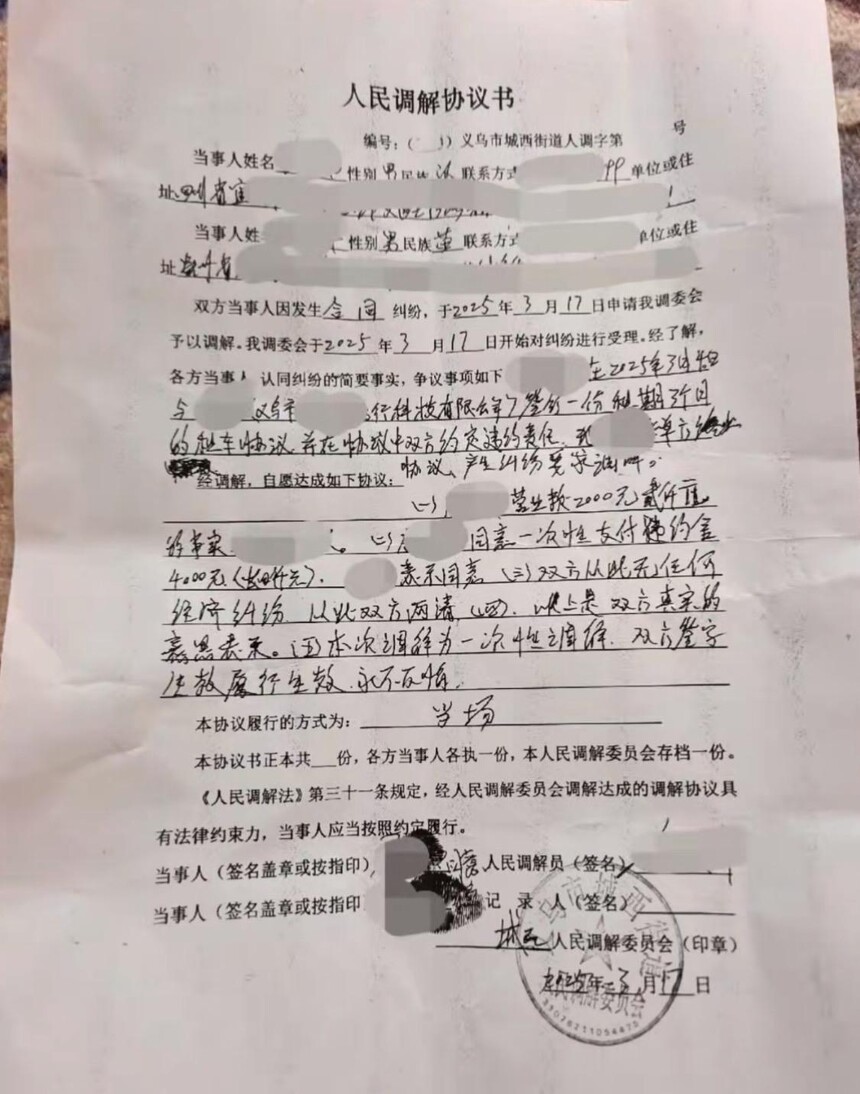 人民调解协议书
编号：( )）义乌市城西街道人调字第 号
当事人姓名 性别男民族汉联系方式 99单位或住
址四川省宜
当事人姓 性别男民族 联系方式 单位或住
址贵州省
双方当事人因发生合同纠纷，于2025年3月17日申请我调委会
予以调解。我调委会于2025年3月17日开始对纠纷进行受理。经了解，
各方当事人 认同纠纷的简要事实，争议事项如下 在2025年3月
与 义乌市 行科技有限公司签的一份租期3个月
的租车协议 并在协议中双方约定违约责任. 单方终止
协议、产生纠纷要求调解。
经调解，自愿达成如下协议：
(一) 营业款2000元贰仟元
(二) 同意一次性支付违约金
4000元(肆仟元). 表示同意 (三)双方从此无任何
经济纠纷 从此双方两清 (四). 以上是双方真实的
意思表示。(五)本次调解为一次性调解. 双方签字
生效履行生效.永不反悔.
本协议履行的方式为：当场
本协议书正本共 份，各方当事人各执一份，本人民调解委员会存档一份。
《人民调解法》第三十一条规定，经人民调解委员会调解达成的调解协议具
有法律约束力，当事人应当按照约定履行。
当事人（签名盖章或按指印） 人民调解员（签名）
当事人（签名盖章或按指印 记 录 人（签名）
城西人民调解委员会（印章）
2025年3月17日